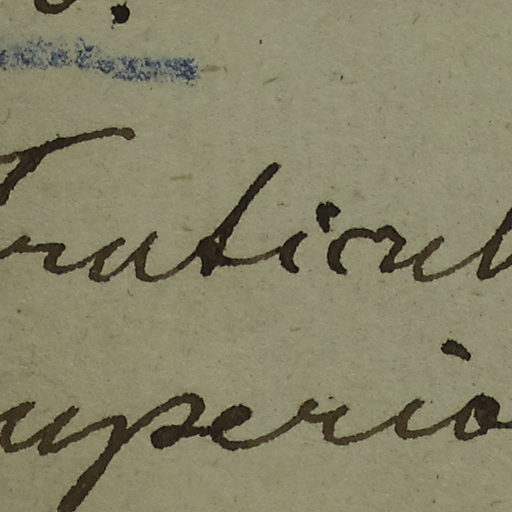 Fruticul
superio